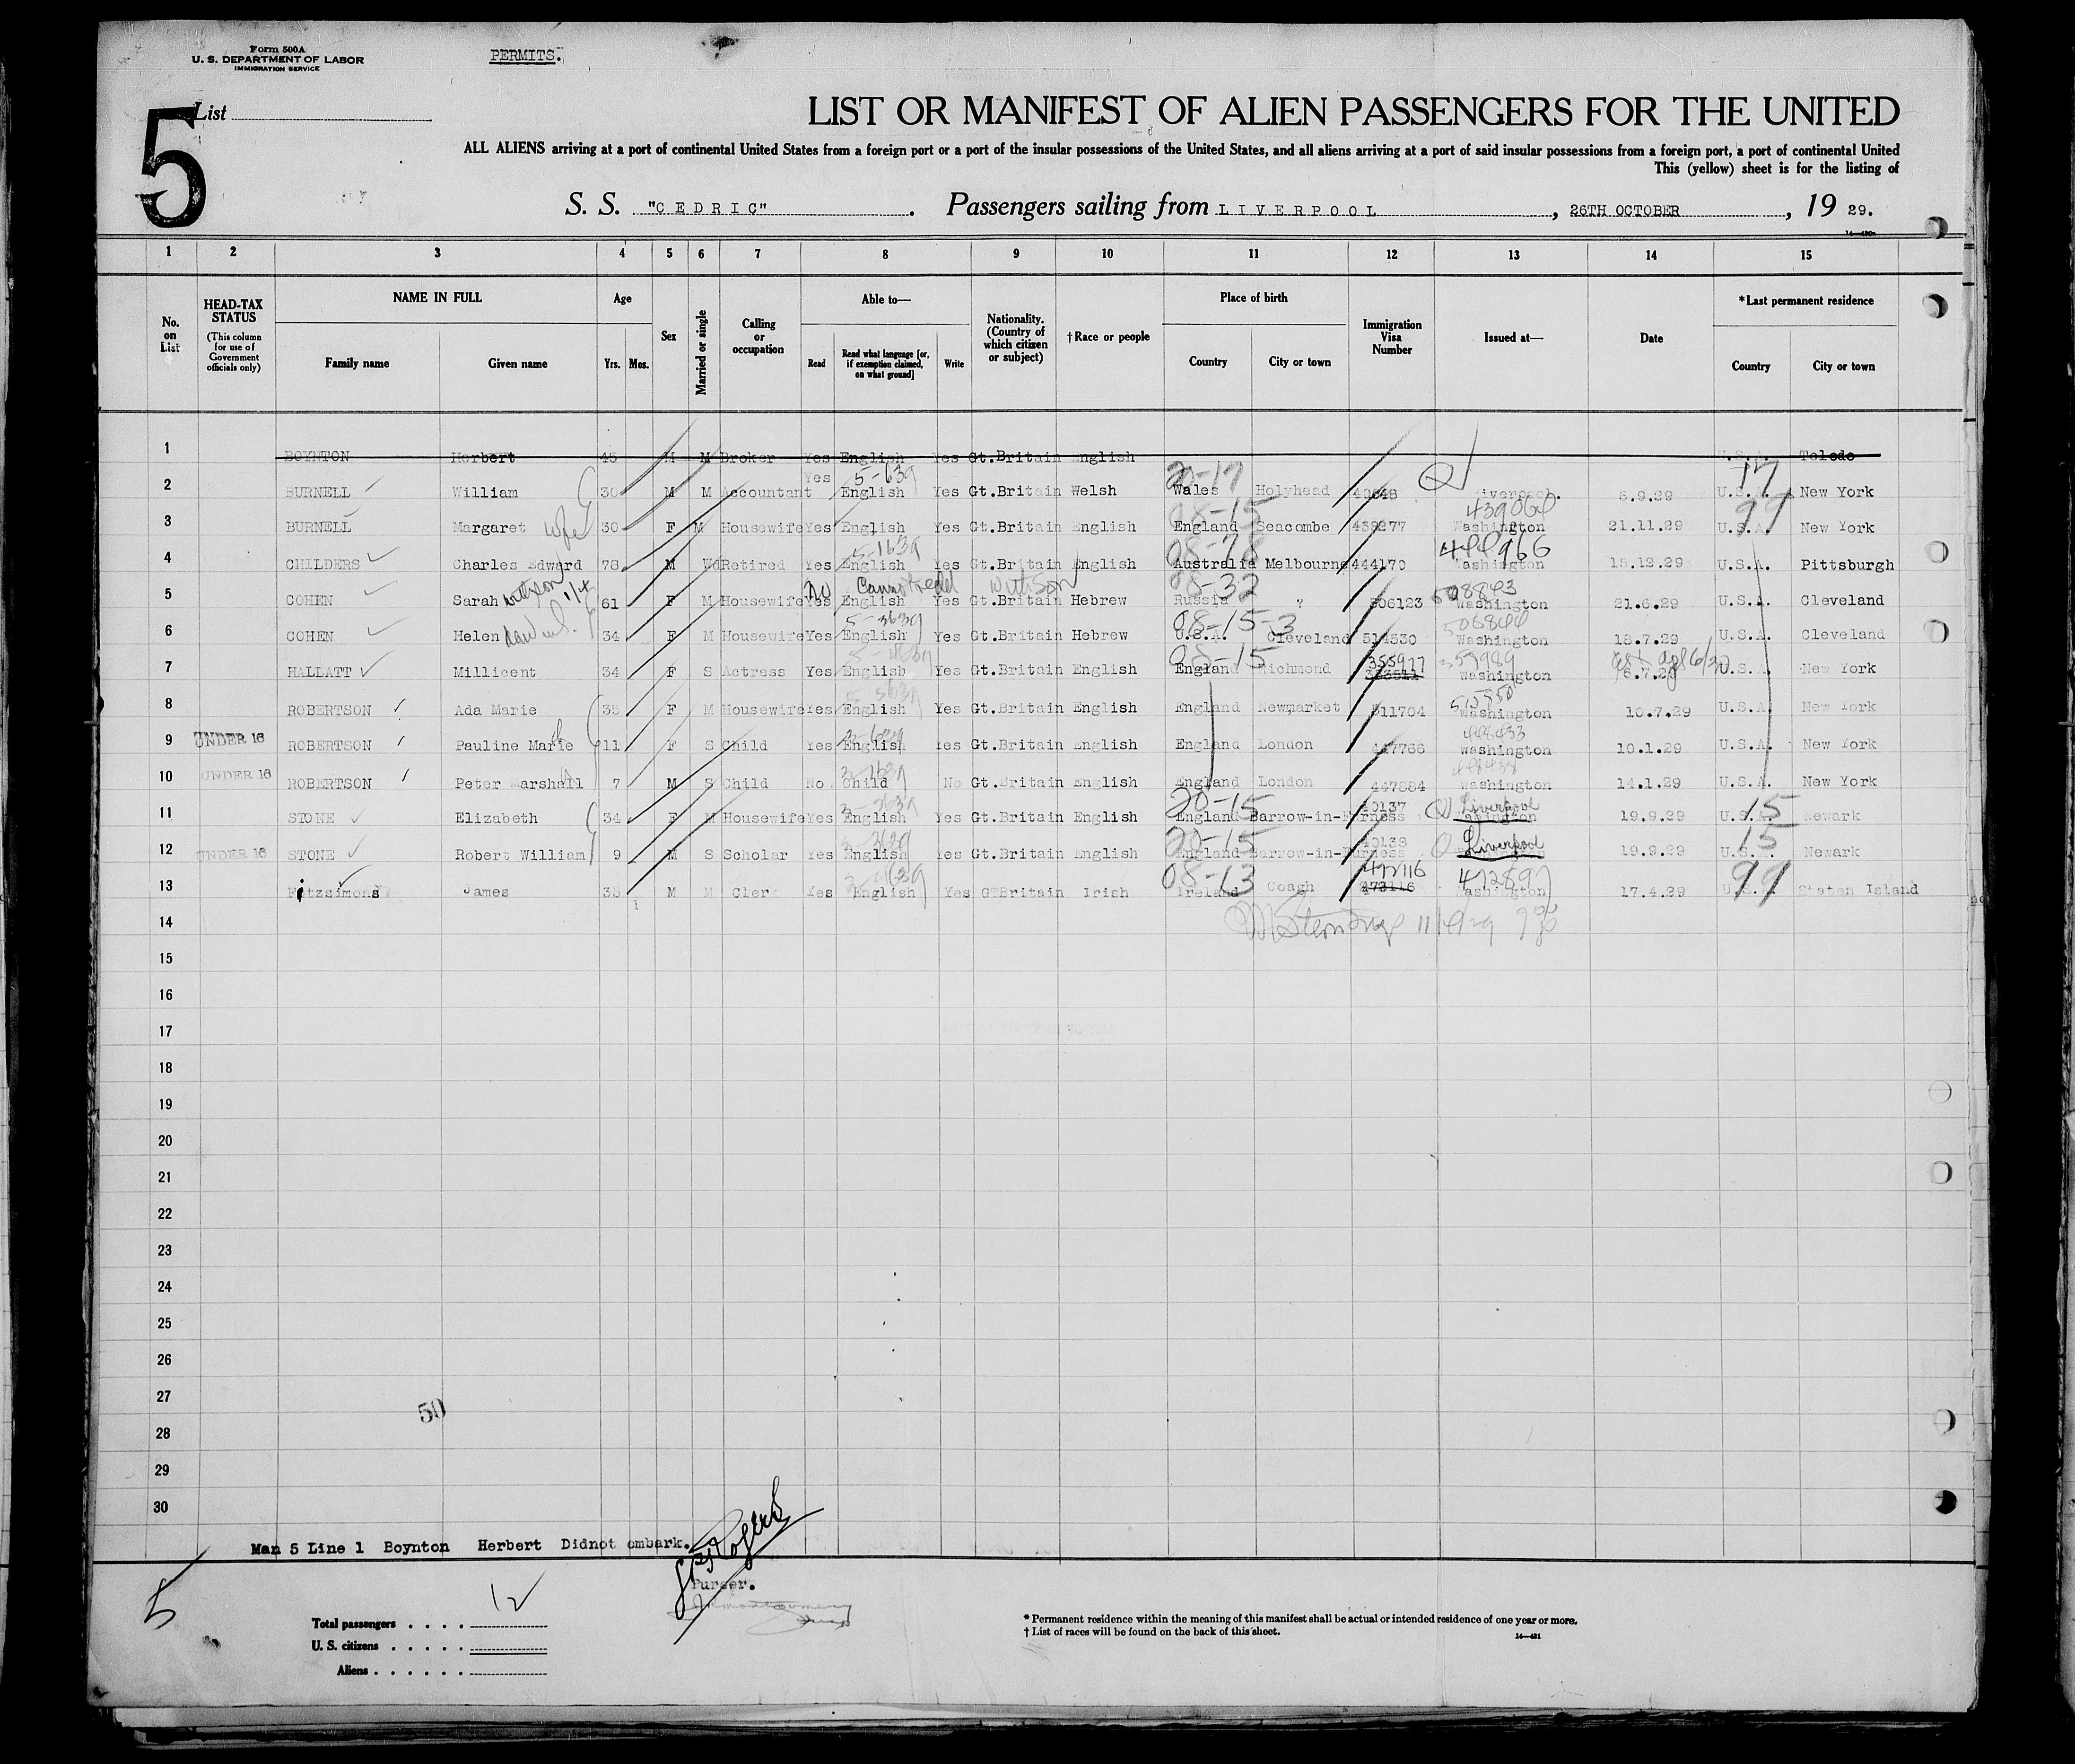 Form 500A
U. S. DEPARTMENT OF LABOR
IMMIGRATION SERVICE
PERMITS.
5
List
LIST OR MANIFEST OF ALIEN PASSENGERS FOR THE UNITED
ALL ALIENS arriving at a port of continental United States from a foreign port or a port of the insular possessions of the United States, and all aliens arriving at a port of said insular possessions from a foreign port, a port of continental United
This (yellow) sheet is for the listing of
S. S. "CEDRIC". Passengers sailing from LIVERPOOL, 26TH OCTOBER, 19 29.
1 2 3 4 5 6 7 8 9 10 11 12 13 14 15
No. on List HEAD-TAX STATUS (This column for use of Government officials only) NAME IN FULL Family name Given name Age Yrs. Mos. Sex Married or single Calling or occupation Able to— Read Read what language [or, if exemption claimed, on what ground] Write Nationality. (Country of which citizen or subject) †Race or people Place of birth Country City or town Immigration Visa Number Issued at— Date *Last permanent residence Country City or town
1 BOYNTON Herbert 45 M M Broker Yes English Yes Gt.Britain English U.S.A. Toledo
2 BURNELL William 30 M M Accountant Yes English 5-639 Yes Gt.Britain Welsh Wales Holyhead 20-17 Liverpool. 6.9.29 U.S.A. 77 New York
3 BURNELL Margaret wife 30 F M Housewife Yes English Yes Gt.Britain English England Seacombe 08-15 439277 439060 Washington 21.11.29 U.S.A. 99 New York
4 CHILDERS Charles Edward 78 M Wd Retired Yes English 5-1639 Yes Gt.Britain English Australia Melbourne 08-78 444170 444966 Washington 15.12.29 U.S.A. Pittsburgh
5 COHEN Sarah 61 F M Housewife Yes No English Cannot read Yes Gt.Britain with son Hebrew Russia ? 08-32 506123 508843 Washington 21.6.29 U.S.A. Cleveland
6 COHEN Helen 34 F M Housewife Yes English 5-3639 Yes Gt.Britain Hebrew U.S.A. Cleveland 08-15-3 514530 Washington 18.7.29 U.S.A. Cleveland
7 HALLATT Millicent 34 F S Actress Yes English Yes Gt.Britain English England Richmond 08-15 355977 Washington 6.7.29 U.S.A. New York
8 ROBERTSON Ada Marie 35 F M Housewife Yes English Yes Gt.Britain English England Newmarket 511704 515850 Washington 10.7.29 U.S.A. New York
9 UNDER 16 ROBERTSON Pauline Marie 11 F S Child Yes English Yes Gt.Britain English England London 447766 448433 Washington 10.1.29 U.S.A. New York
10 UNDER 16 ROBERTSON Peter Marshall 7 M S Child No Child No Gt.Britain English England London 447884 Washington 14.1.29 U.S.A. New York
11 STONE Elizabeth 34 F M Housewife Yes English Yes Gt.Britain English England Barrow-in-Furness 20-15 40137 Liverpool 19.9.29 U.S.A. 15 Newark
12 UNDER 16 STONE Robert William 9 M S Scholar Yes English Yes Gt.Britain English England Barrow-in-Furness 20-15 40138 Liverpool 19.9.29 U.S.A. 15 Newark
13 Fitzsimons James 35 M M Clerk Yes English Yes GTBritain Irish Ireland Coagh 08-13 472116 472897 Washington 17.4.29 U.S.A. 99 Staten Island
14
15
16
17
18
19
20
21
22
23
24
25
26
27
50
28
29
30
Man 5 Line 1 Boynton Herbert Didnot embark.
Purser.
5
Total passengers 12
U. S. citizens
Aliens
* Permanent residence within the meaning of this manifest shall be actual or intended residence of one year or more.
† List of races will be found on the back of this sheet.
14—421